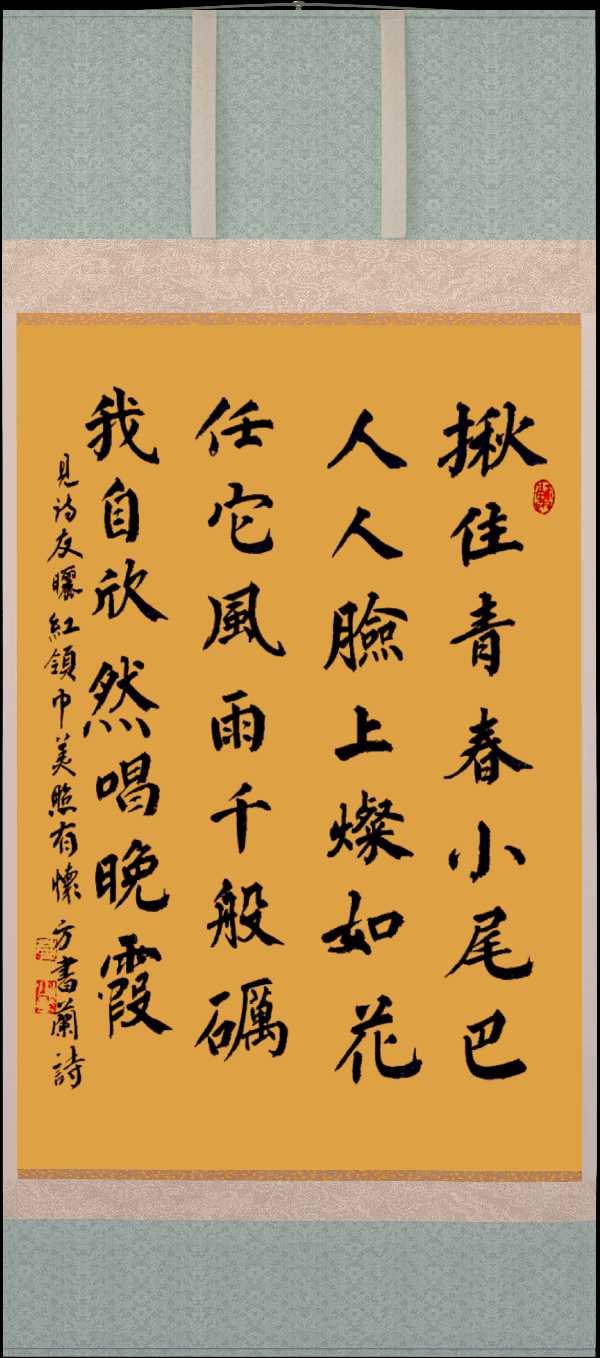 揪住青春小尾巴
人人臉上燦如花
任它風雨千般礪
我自欣然唱晚霞
見诗友曬紅領巾美照有懷 方書蘭詩